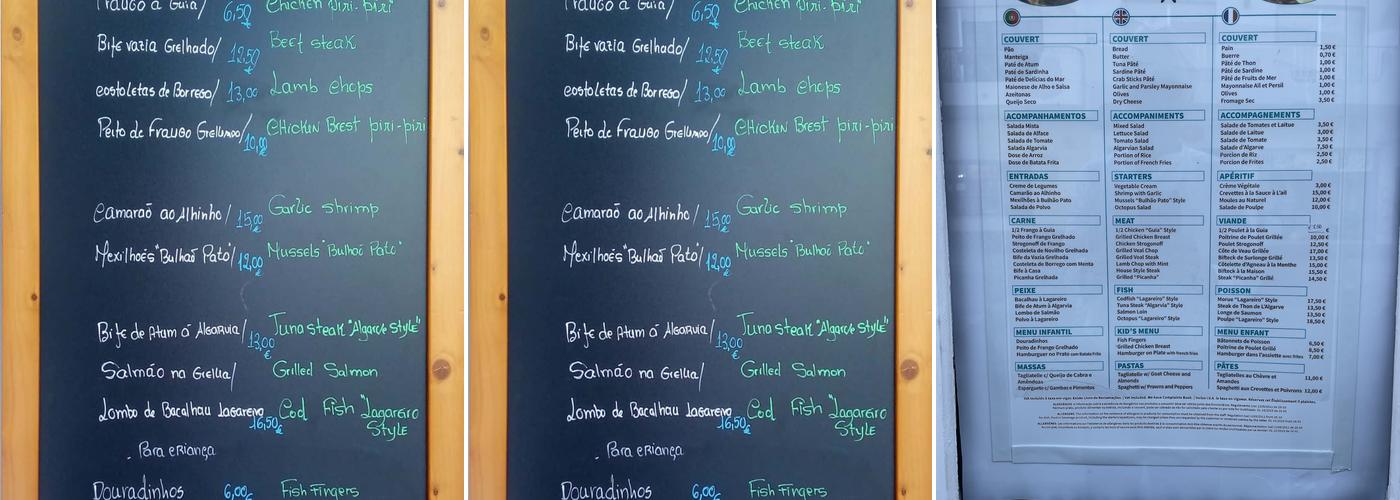 6,50 Chicken piri-piri
€
Bife vazia Grelhado/ 12,50 Beef steak
€
costoletas de Borrego/ 13,00 Lamb chops
Peito de Frango Grelhado/ 10,00 Chicken Brest piri-piri
Camarão ao Alhinho/ 15,00 Garlic shrimp
€
Mexilhoẽs "Bulhaõ Pato"/ 12,00 Mussels "Bulhaõ Pato"
€
Bife de Atum á Algarvia/ 13,00 Tuna steak "Algarve Style"
€
Salmão na Grelha/ Grilled Salmon
Lombo de Bacalhau Lagareiro 16,50 Cod Fish "Lagareiro
€ Style
. Para criança
Douradinhos 6,00€ Fish Fingers
6,50 Chicken piri-piri
€
Bife vazia Grelhado/ 12,50 Beef steak
€
costoletas de Borrego/ 13,00 Lamb chops
Peito de Frango Grelhado/ 10,00 Chicken Brest piri-piri
Camarão ao Alhinho/ 15,00 Garlic shrimp
€
Mexilhoẽs "Bulhaõ Pato"/ 12,00 Mussels "Bulhaõ Pato"
€
Bife de Atum á Algarvia/ 13,00 Tuna steak "Algarve Style"
€
Salmão na Grelha/ Grilled Salmon
Lombo de Bacalhau Lagareiro 16,50 Cod Fish "Lagareiro
€ Style
. Para criança
Douradinhos 6,00€ Fish Fingers
COUVERT COUVERT COUVERT
Pão Bread Pain 1,50 €
Manteiga Butter Buerre 0,70 €
Paté de Atum Tuna Pâté Pâté de Thon 1,00 €
Paté de Sardinha Sardine Pâté Pâté de Sardine 1,00 €
Paté de Delícias do Mar Crab Sticks Pâté Pâté de Fruits de Mer 1,00 €
Maionese de Alho e Salsa Garlic and Parsley Mayonnaise Mayonnaise Ail et Persil 1,00 €
Azeitonas Olives Olives 1,00 €
Queijo Seco Dry Cheese Fromage Sec 3,50 €
ACOMPANHAMENTOS ACCOMPANIMENTS ACCOMPAGNEMENTS
Salada Mista Mixed Salad Salade de Tomates et Laitue 3,50 €
Salada de Alface Lettuce Salad Salade de Laitue 3,00 €
Salada de Tomate Tomato Salad Salade de Tomate 3,50 €
Salada Algarvia Algarvian Salad Salade d'Algarve 7,50 €
Dose de Arroz Portion of Rice Porcion de Riz 2,50 €
Dose de Batata Frita Portion of French Fries Porcion de Frites 2,50 €
ENTRADAS STARTERS APÉRITIF
Creme de Legumes Vegetable Cream Crème Végétale 3,00 €
Camarão ao Alhinho Shrimp with Garlic Crevettes à la Sauce à L'ail 15,00 €
Mexilhões à Bulhão Pato Mussels "Bulhão Pato" Style Moules au Naturel 12,00 €
Salada de Polvo Octopus Salad Salade de Poulpe 10,00 €
CARNE MEAT VIANDE
1/2 Frango à Guia 1/2 Chicken "Guia" Style 1/2 Poulet à la Guia €
Peito de Frango Grelhado Grilled Chicken Breast Poitrine de Poulet Grillée 10,00 €
Strogonoff de Frango Chicken Strogonoff Poulet Strogonoff 12,50 €
Costeleta de Novilho Grelhada Grilled Veal Chop Côte de Veau Grillée 17,00 €
Bife da Vazia Grelhada Grilled Veal Steak Bifteck de Surlonge Grillé 13,50 €
Costeleta de Borrego com Menta Lamb Chop with Mint Côtelette d'Agneau à la Menthe 15,00 €
Bife à Casa House Style Steak Bifteck à la Maison 15,50 €
Picanha Grelhada Grilled "Picanha" Steak "Picanha" Grillé 14,50 €
PEIXE FISH POISSON
Bacalhau à Lagareiro Codfish "Lagareiro" Style Morue "Lagareiro" Style 17,50 €
Bife de Atum à Algarvia Tuna Steak "Algarvia" Style Steak de Thon de L'Algarve 13,50 €
Lombo de Salmão Salmon Loin Longe de Saumon 13,50 €
Polvo à Lagareiro Octopus "Lagareiro" Style Poulpe "Lagareiro" Style 18,50 €
MENU INFANTIL KID'S MENU MENU ENFANT
Douradinhos Fish Fingers Bâtonnets de Poisson 6,50 €
Peito de Frango Grelhado Grilled Chicken Breast Poitrine de Poulet Grillé 8,50 €
Hamburguer no Prato com Batata Frita Hamburger on Plate with French fries Hamburger dans l'assiette avec frites 7,00 €
MASSAS PASTAS PÂTES
Tagliatelle c/ Queijo de Cabra e Tagliatelle w/ Goat Cheese and Tagliatelles au Chèvre et 11,00 €
Amêndoas Almonds Amandes
Esparguete c/ Gambas e Pimentos Spaghetti w/ Prawns and Peppers Spaghetti aux Crevettes et Poivrons 12,00 €